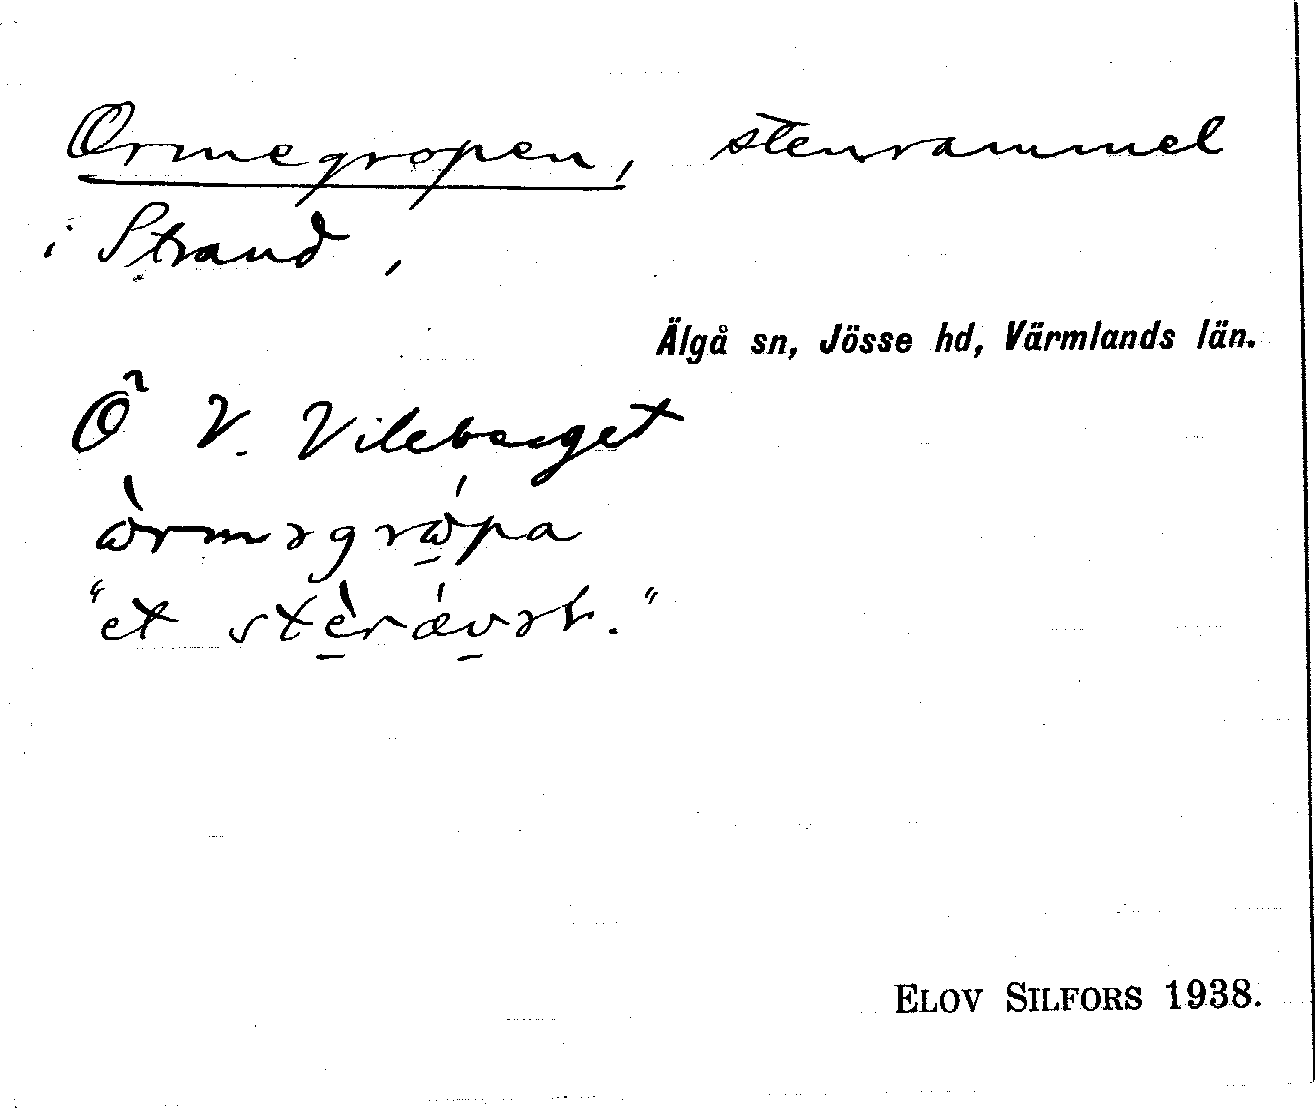 Ormegropen, stenrammel
i Strand,
Älgå sn, Jösse hd, Värmlands län.
Ö V. Vileberget
ɷ̀rməgrɷ̱́pa
"et stè̱rǽv̱ər."
ELOV SILFORS 1938.